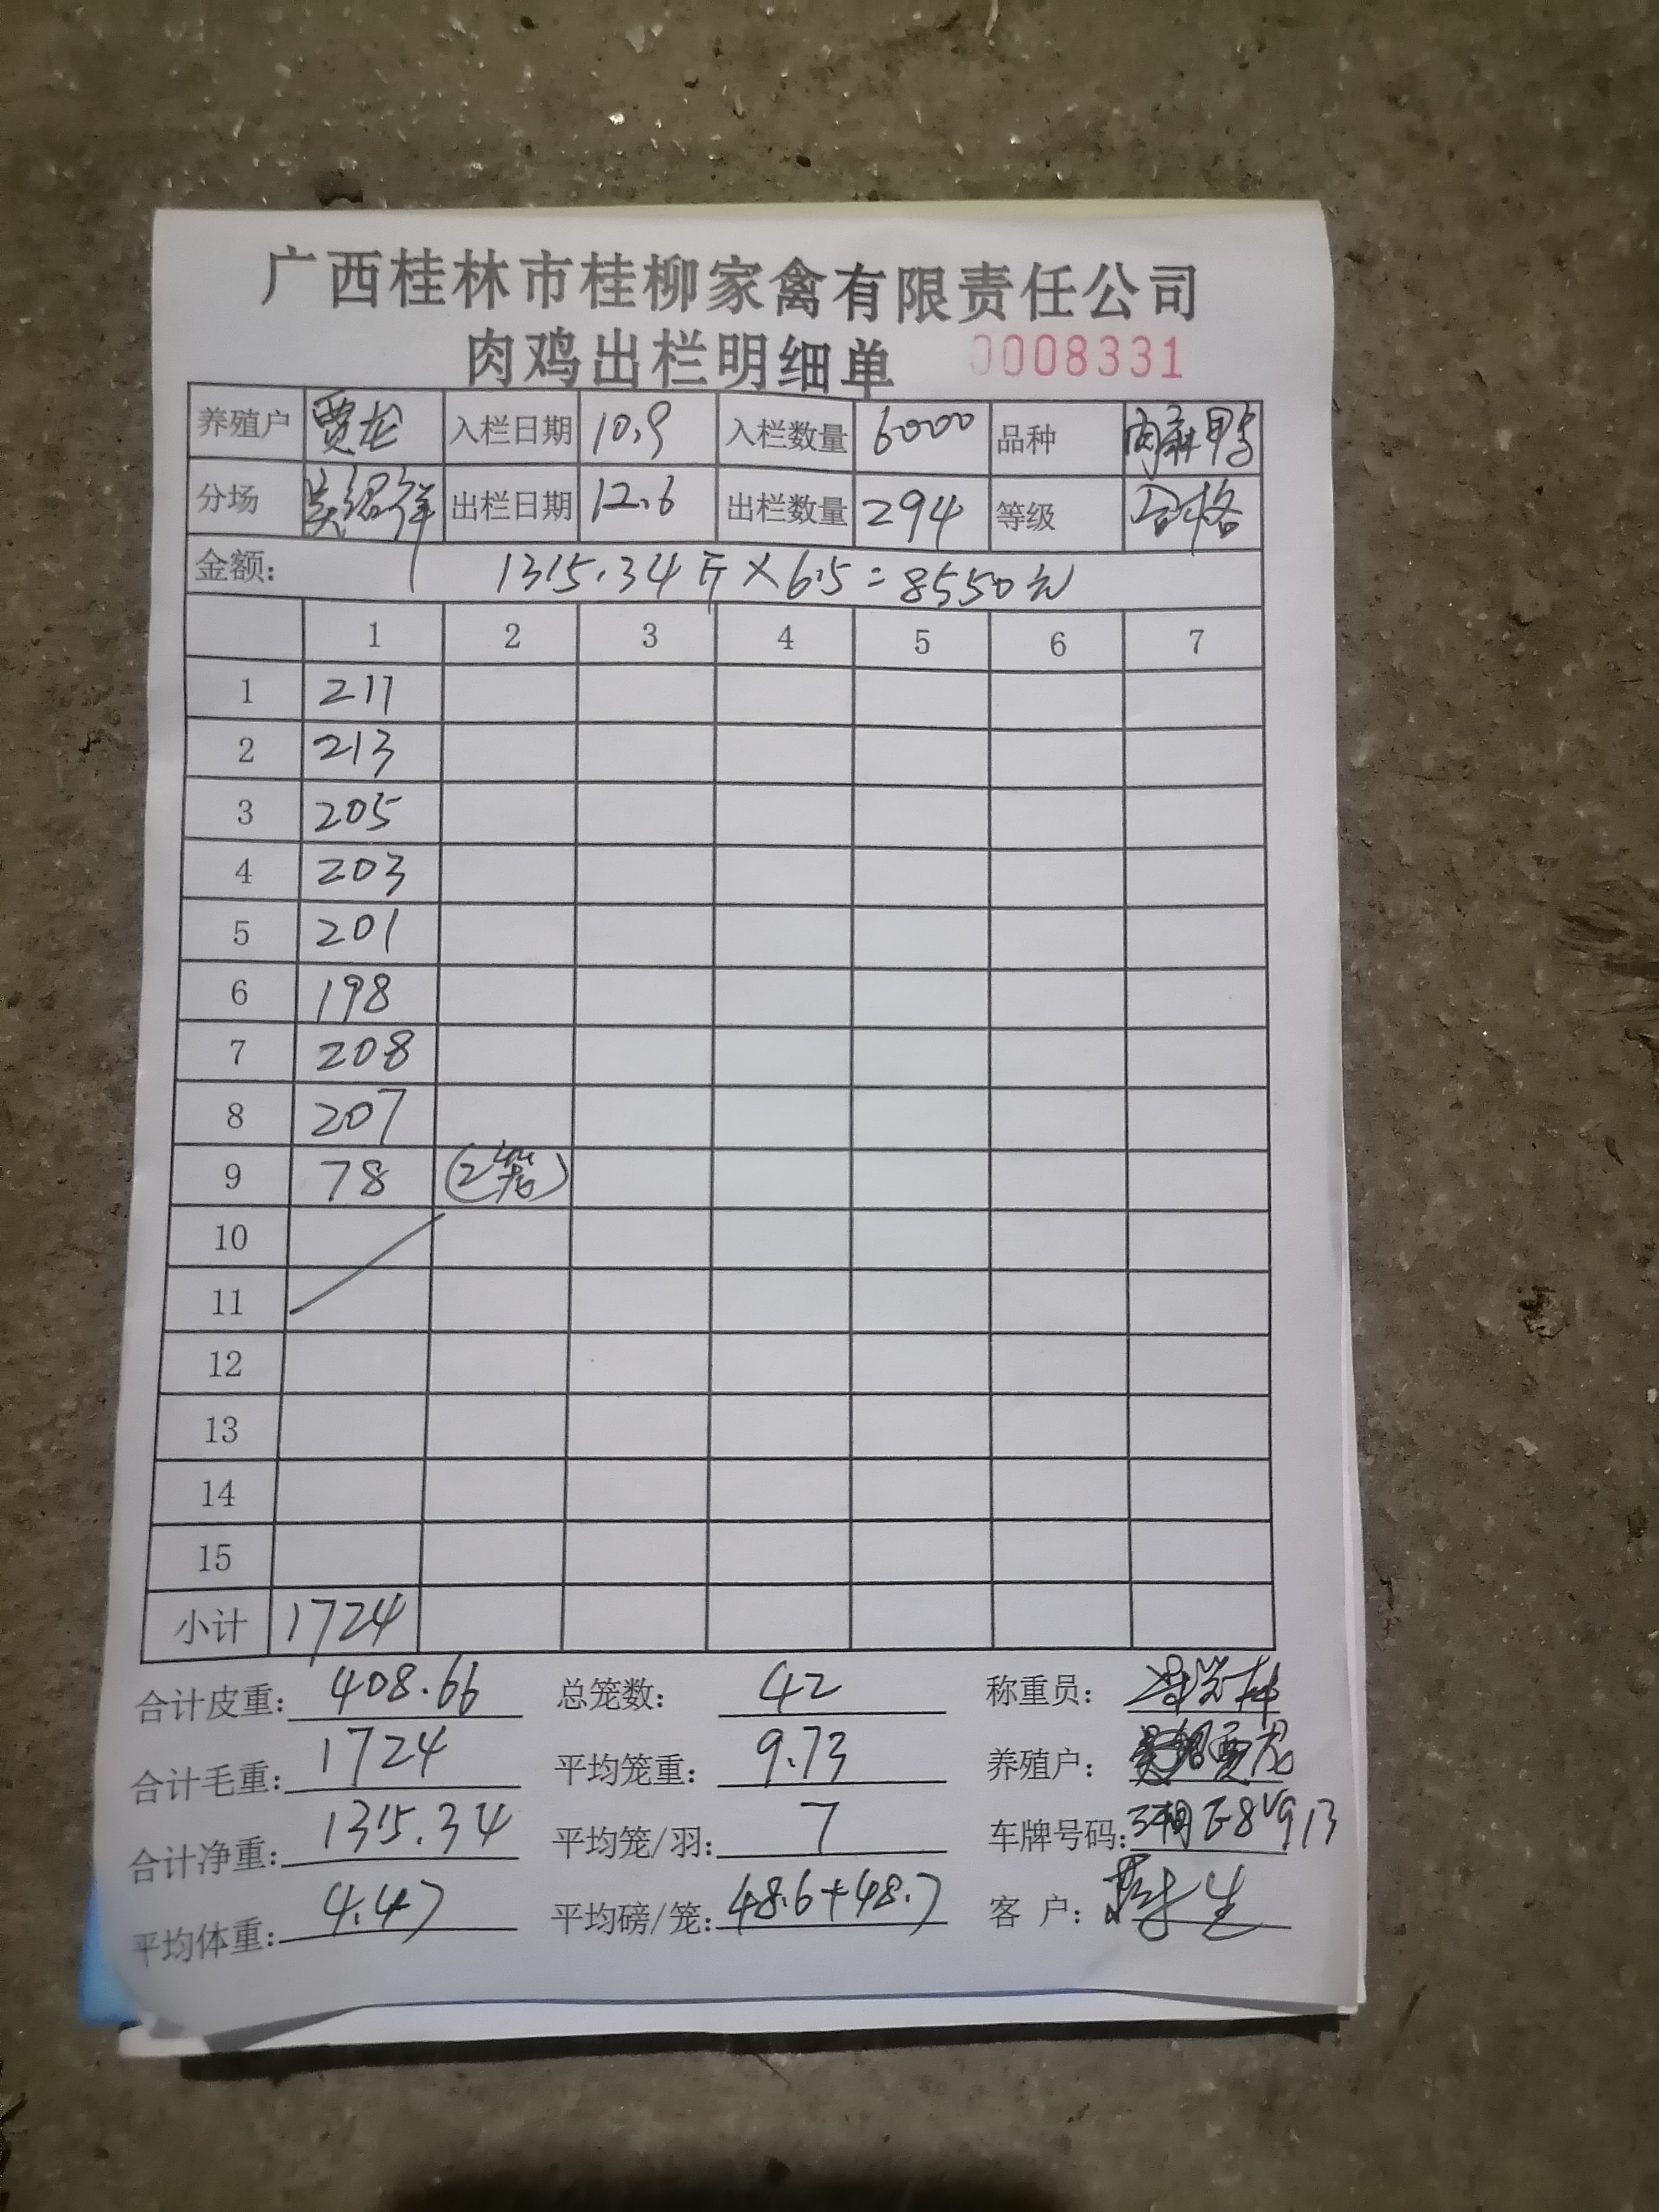 广西桂林市桂柳家禽有限责任公司
肉鸡出栏明细单 0008331
养殖户 贾龙 入栏日期 10.9 入栏数量 6000 品种 肉麻鸭
分场 吴绍祥 出栏日期 12.6 出栏数量 294 等级 合格
金额: 1315.34斤×6.5=8550元
1 2 3 4 5 6 7
1 211
2 213
3 205
4 203
5 201
6 198
7 208
8 207
9 78 (2笼)
10
11
12
13
14
15
小计 1724
合计皮重: 408.66 总笼数: 42 称重员:
合计毛重: 1724 平均笼重: 9.73 养殖户: 贾龙
合计净重: 1315.34 平均笼/羽: 7 车牌号码:
平均体重: 4.47 平均磅/笼: 48.6+48.7 客 户: